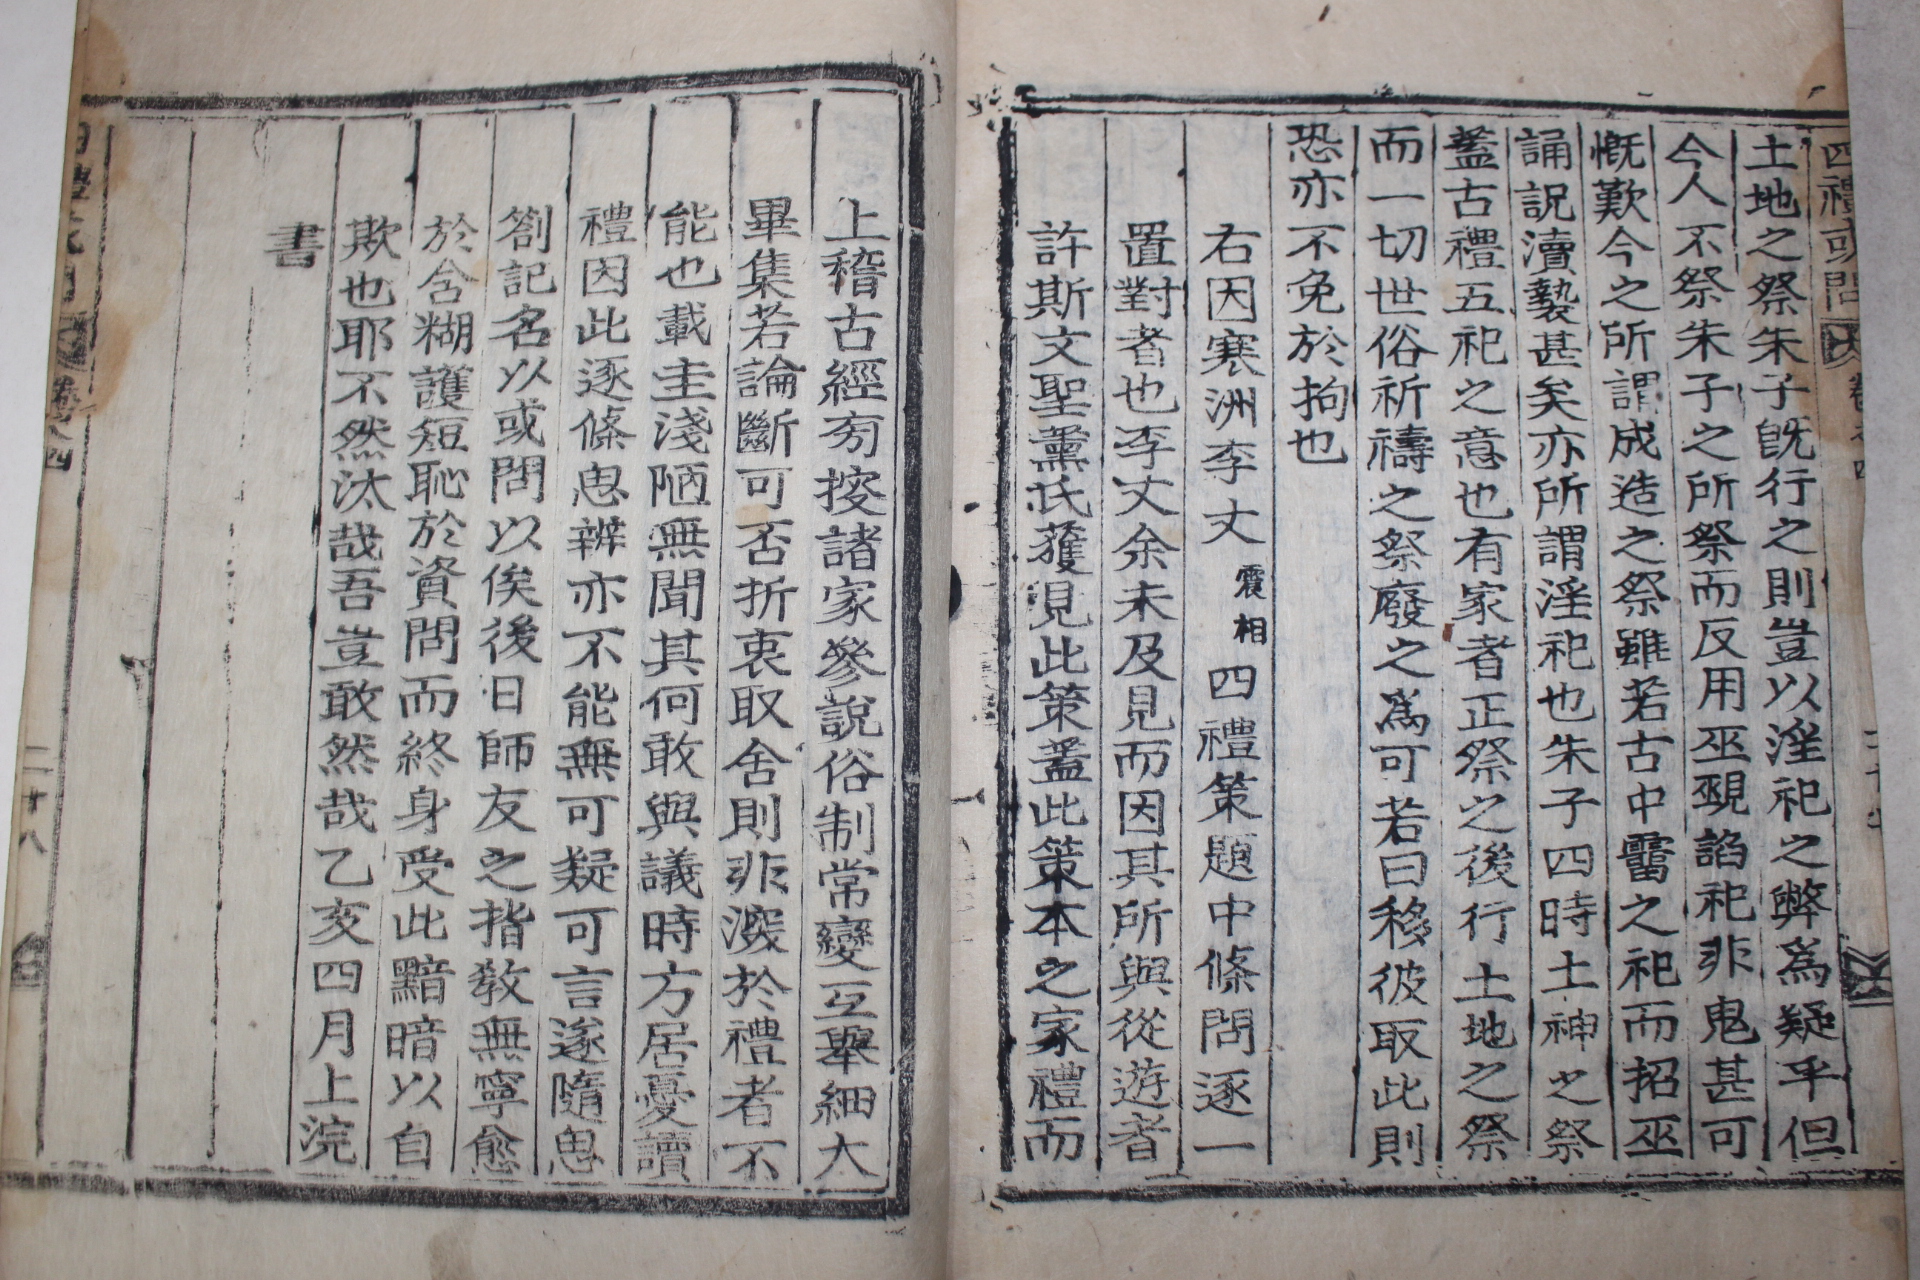 四禮或問 卷之四
土地之祭朱子旣行之則豈以淫祀之弊爲疑乎但
今人不祭朱子之所祭而反用巫覡諂祀非鬼甚可
慨歎今之所謂成造之祭雖若古中霤之祀而招巫
誦説瀆褻甚矣亦所謂淫祀也朱子四時土神之祭
蓋古禮五祀之意也有家者正祭之後行土地之祭
而一切世俗祈禱之祭廢之爲可若曰移彼取此則
恐亦不免於拘也
右因寒洲李丈震相四禮策題中條問逐一
置對者也李丈余未及見而因其所與從遊者
許斯文聖薰氏獲見此策蓋此策本之家禮而
上稽古經旁按諸家參說俗制常變互擧細大
畢集若論斷可否折衷取舍則非深於禮者不
能也載圭淺陋無聞其何敢與議時方居憂讀
禮因此逐條思辨亦不能無可疑可言遂隨思
劄記名以或問以俟後日師友之指教無寧愈
於含糊護短恥於資問而終身受此黯暗以自
欺也耶不然汰哉吾豈敢然哉乙亥四月上浣
書
卷之四
二十八